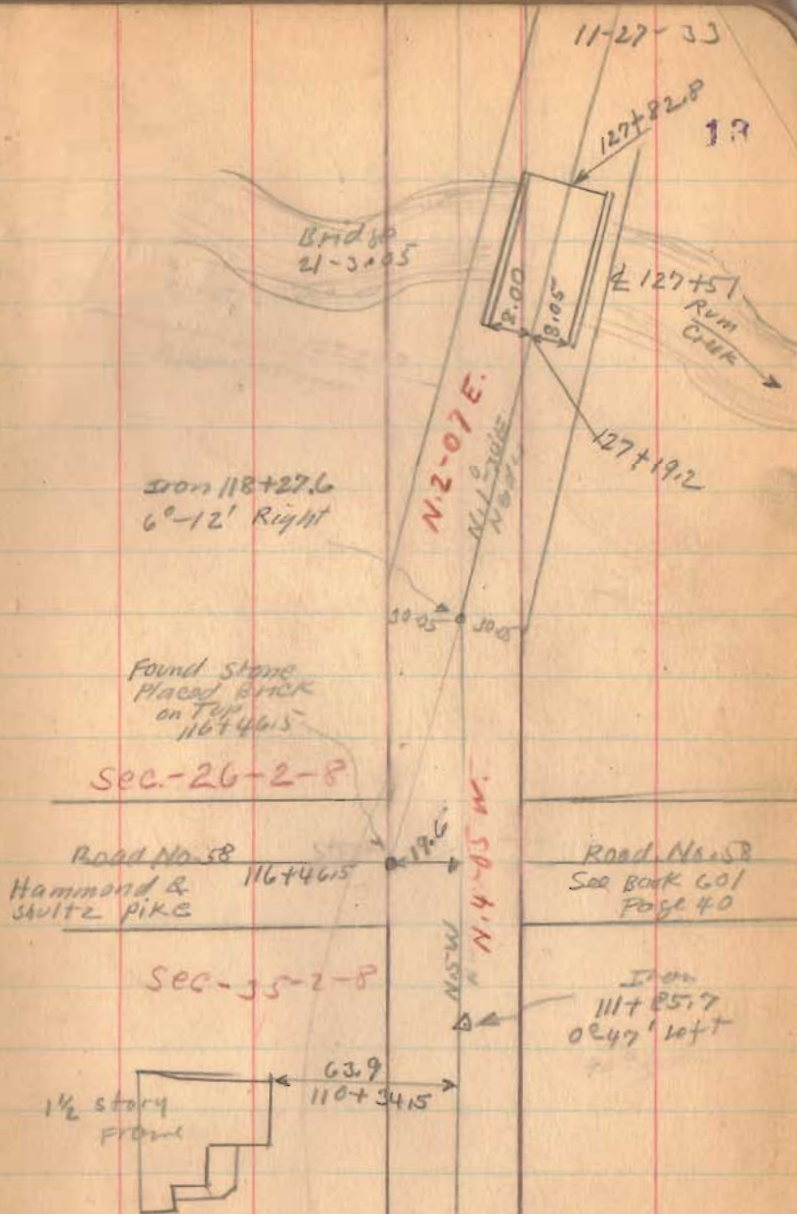 11-27-33
13
127+82.8
Bridge
21-3.05
8.00
8.05
℄ 127+51
Rum
Creek
127+19.2
N.2-07 E.
Iron 118+27.6
6°-12' Right
30.05
30.05
Found Stone
Placed Brick
on Top
116+46.5
Sec.-26-2-8
N.4-05 W.
19.6
Road No. 58
116+46.5
Hammond &
Shultz Pike
Road No. 58
See Book 601
Page 40
Sec-35-2-8
N5W
Iron
111+85.7
0°47' Left
63.9
110+34.5
1½ Story
Frame